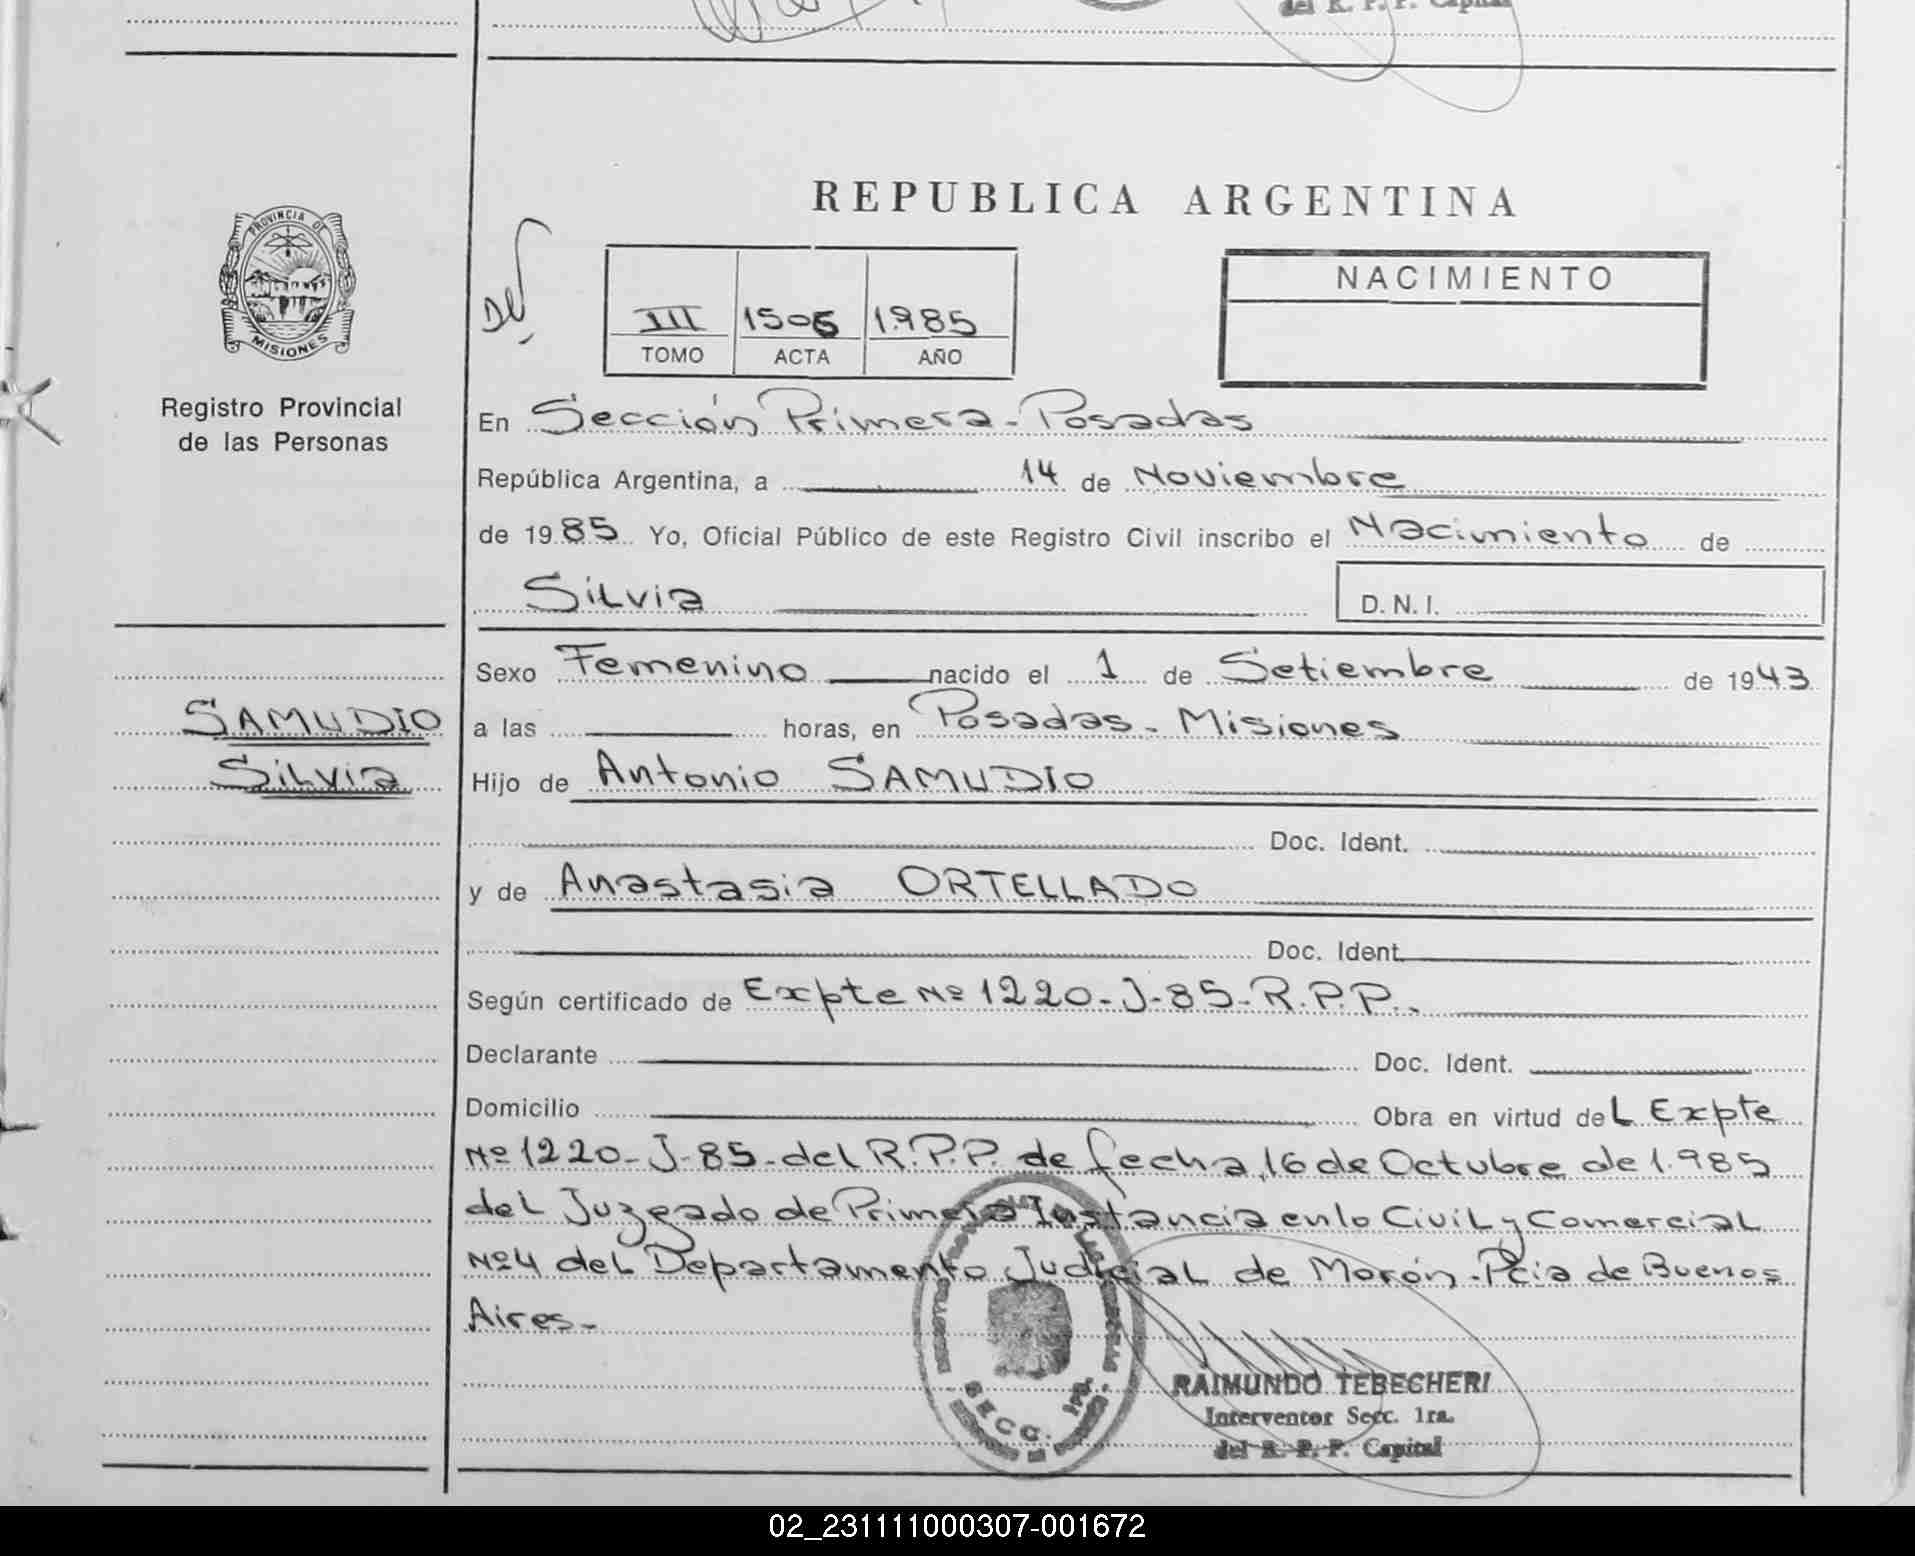 del R. P. P. Capital
REPUBLICA ARGENTINA
PROVINCIA DE
MISIONES
Registro Provincial
de las Personas
III 1506 1.985
TOMO ACTA AÑO
NACIMIENTO
En Sección Primera - Posadas
República Argentina, a 14 de Noviembre
de 1985 Yo, Oficial Público de este Registro Civil inscribo el Nacimiento de
Silvia D. N. I.
Sexo Femenino nacido el 1 de Setiembre de 1943
SAMUDIO
a las horas, en Posadas - Misiones
Silvia
Hijo de Antonio SAMUDIO
Doc. Ident.
y de Anastasia ORTELLADO
Doc. Ident.
Según certificado de Expte Nº 1220-J-85-R.P.P..
Declarante Doc. Ident.
Domicilio Obra en virtud del Expte
Nº 1220-J-85-del R.P.P. de fecha, 16 de Octubre de 1.985
del Juzgado de Primera Instancia en lo Civil y Comercial
Nº4 del Departamento Judicial de Morón - Pcia de Buenos
Aires-
SECC. 1ra.
RAIMUNDO TEBECHERI
Interventor Secc. 1ra.
del R. P. P. Capital
02_231111000307-001672